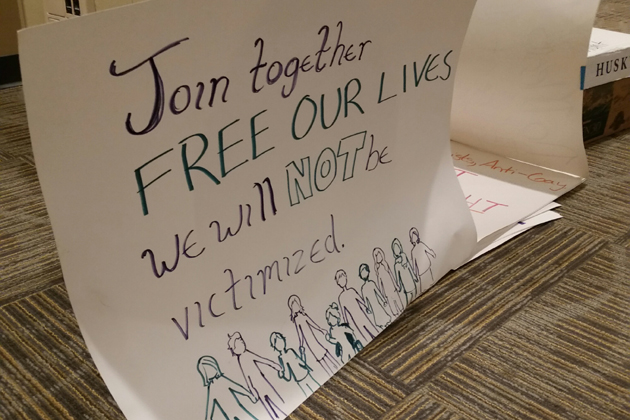 Join together
FREE OUR LIVES
we will NOT be
victimized.
Anti-Gay
HUSK